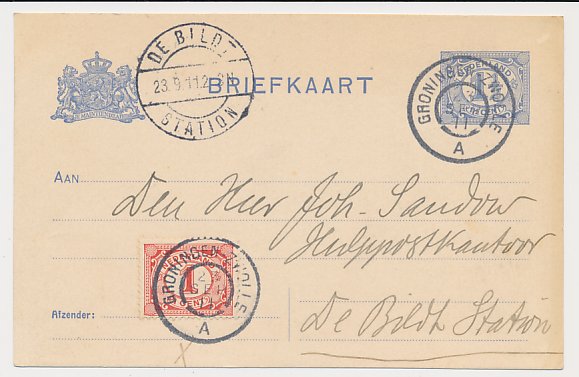 DE BILDT
23.9.11.2
STATION
BRIEFKAART
GRONINGEN-ZWOLLE
A
AAN
Den Heer Joh. Sandow
Hulppostkantoor
GRONINGEN-ZWOLLE
1
CENT
A
Afzender:
De Bildt Station